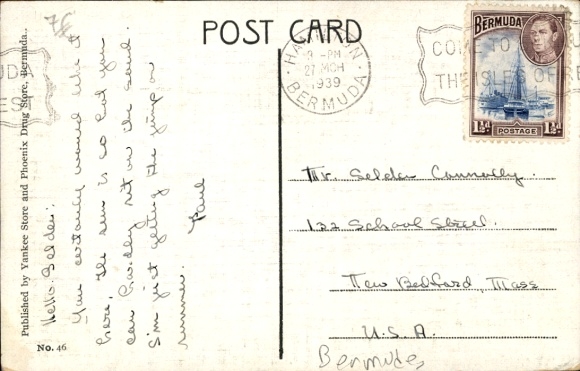 POST CARD
HAMILTON
9-PM
27 MCH
1939
BERMUDA
COME TO
THE ISLES OF RE
BERMUDA
1½d
POSTAGE
1½d
Published by Yankee Store and Phoenix Drug Store, Bermuda.
No. 46
Hello Selden:
You certainly would like it
here, the sun is so hot you
can hardly sit on the sand.
I'm just getting the jump on
summer.
Paul
Mr. Selden Connolly.
122 School Street.
New Bedford, Mass
U.S.A.
Bermuda